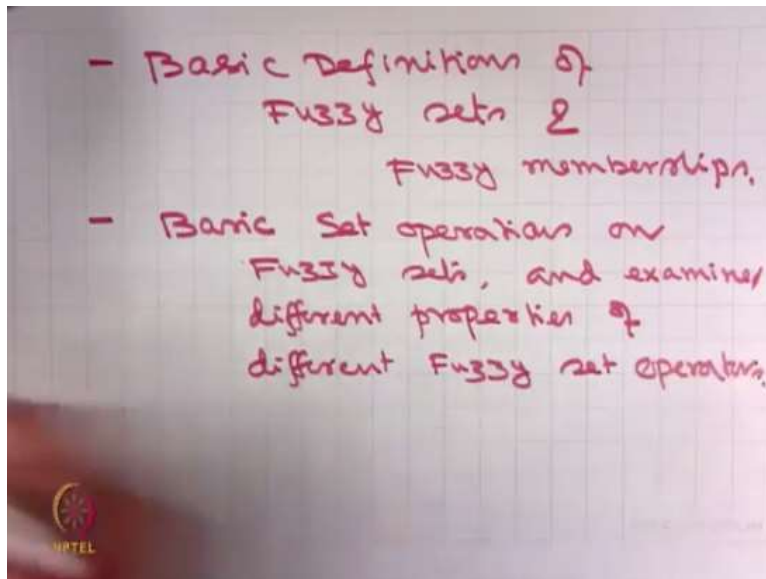 - Basic Definitions of
Fuzzy sets &
Fuzzy memberships.
- Basic Set operations on
Fuzzy sets, and examine
different properties of
different Fuzzy set operators.
NPTEL